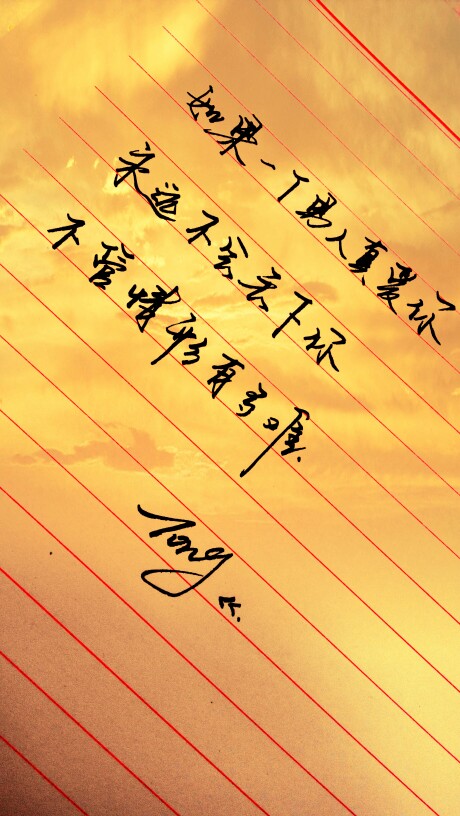 如果一个男人真爱你
永远不会丢下你
不管情形有多
Tong
K.